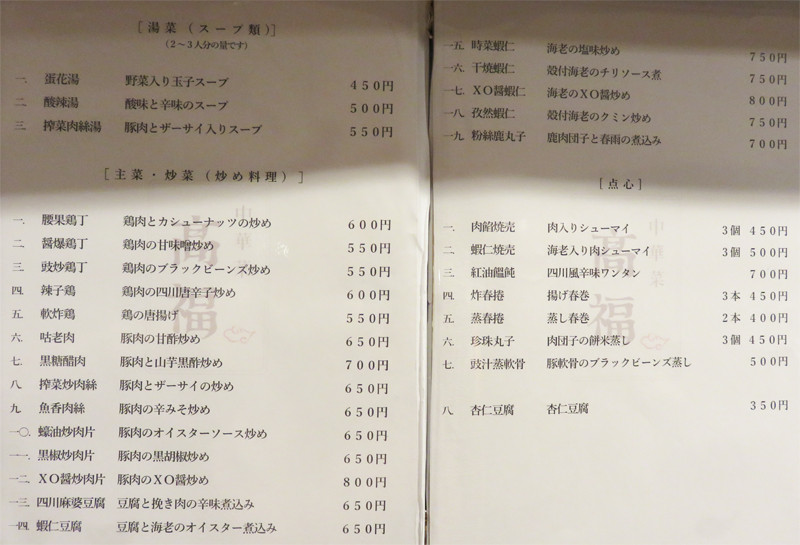 [湯菜(スープ類)]
(2〜3人分の量です)
一. 蛋花湯 野菜入り玉子スープ 450円
二. 酸辣湯 酸味と辛味のスープ 500円
三. 搾菜肉絲湯 豚肉とザーサイ入りスープ 550円
[主菜・炒菜(炒め料理)]
一. 腰果鶏丁 鶏肉とカシューナッツの炒め 600円
二. 醤爆鶏丁 鶏肉の甘味噌炒め 550円
三. 豉炒鶏丁 鶏肉のブラックビーンズ炒め 550円
四. 辣子鶏 鶏肉の四川唐辛子炒め 600円
五. 軟炸鶏 鶏の唐揚げ 550円
六. 咕老肉 豚肉の甘酢炒め 650円
七. 黒糖醋肉 豚肉と山芋黒酢炒め 700円
八. 搾菜炒肉絲 豚肉とザーサイの炒め 650円
九. 魚香肉絲 豚肉の辛みそ炒め 650円
一〇. 蠔油炒肉片 豚肉のオイスターソース炒め 650円
一一. 黒椒炒肉片 豚肉の黒胡椒炒め 650円
一二. XO醤炒肉片 豚肉のXO醤炒め 800円
一三. 四川麻婆豆腐 豆腐と挽き肉の辛味煮込み 650円
一四. 蝦仁豆腐 豆腐と海老のオイスター煮込み 650円
中華菜
高福
一五. 時菜蝦仁 海老の塩味炒め 750円
一六. 干焼蝦仁 殻付海老のチリソース煮 750円
一七. XO醤蝦仁 海老のXO醤炒め 800円
一八. 孜然蝦仁 殻付海老のクミン炒め 750円
一九. 粉絲鹿丸子 鹿肉団子と春雨の煮込み 700円
[点心]
一. 肉餡焼売 肉入りシューマイ 3個 450円
二. 蝦仁焼売 海老入り肉シューマイ 3個 500円
三. 紅油餛飩 四川風辛味ワンタン 700円
四. 炸春捲 揚げ春巻 3本 450円
五. 蒸春捲 蒸し春巻 2本 400円
六. 珍珠丸子 肉団子の餅米蒸し 3個 450円
七. 豉汁蒸軟骨 豚軟骨のブラックビーンズ蒸し 500円
八. 杏仁豆腐 杏仁豆腐 350円
中華菜
高福